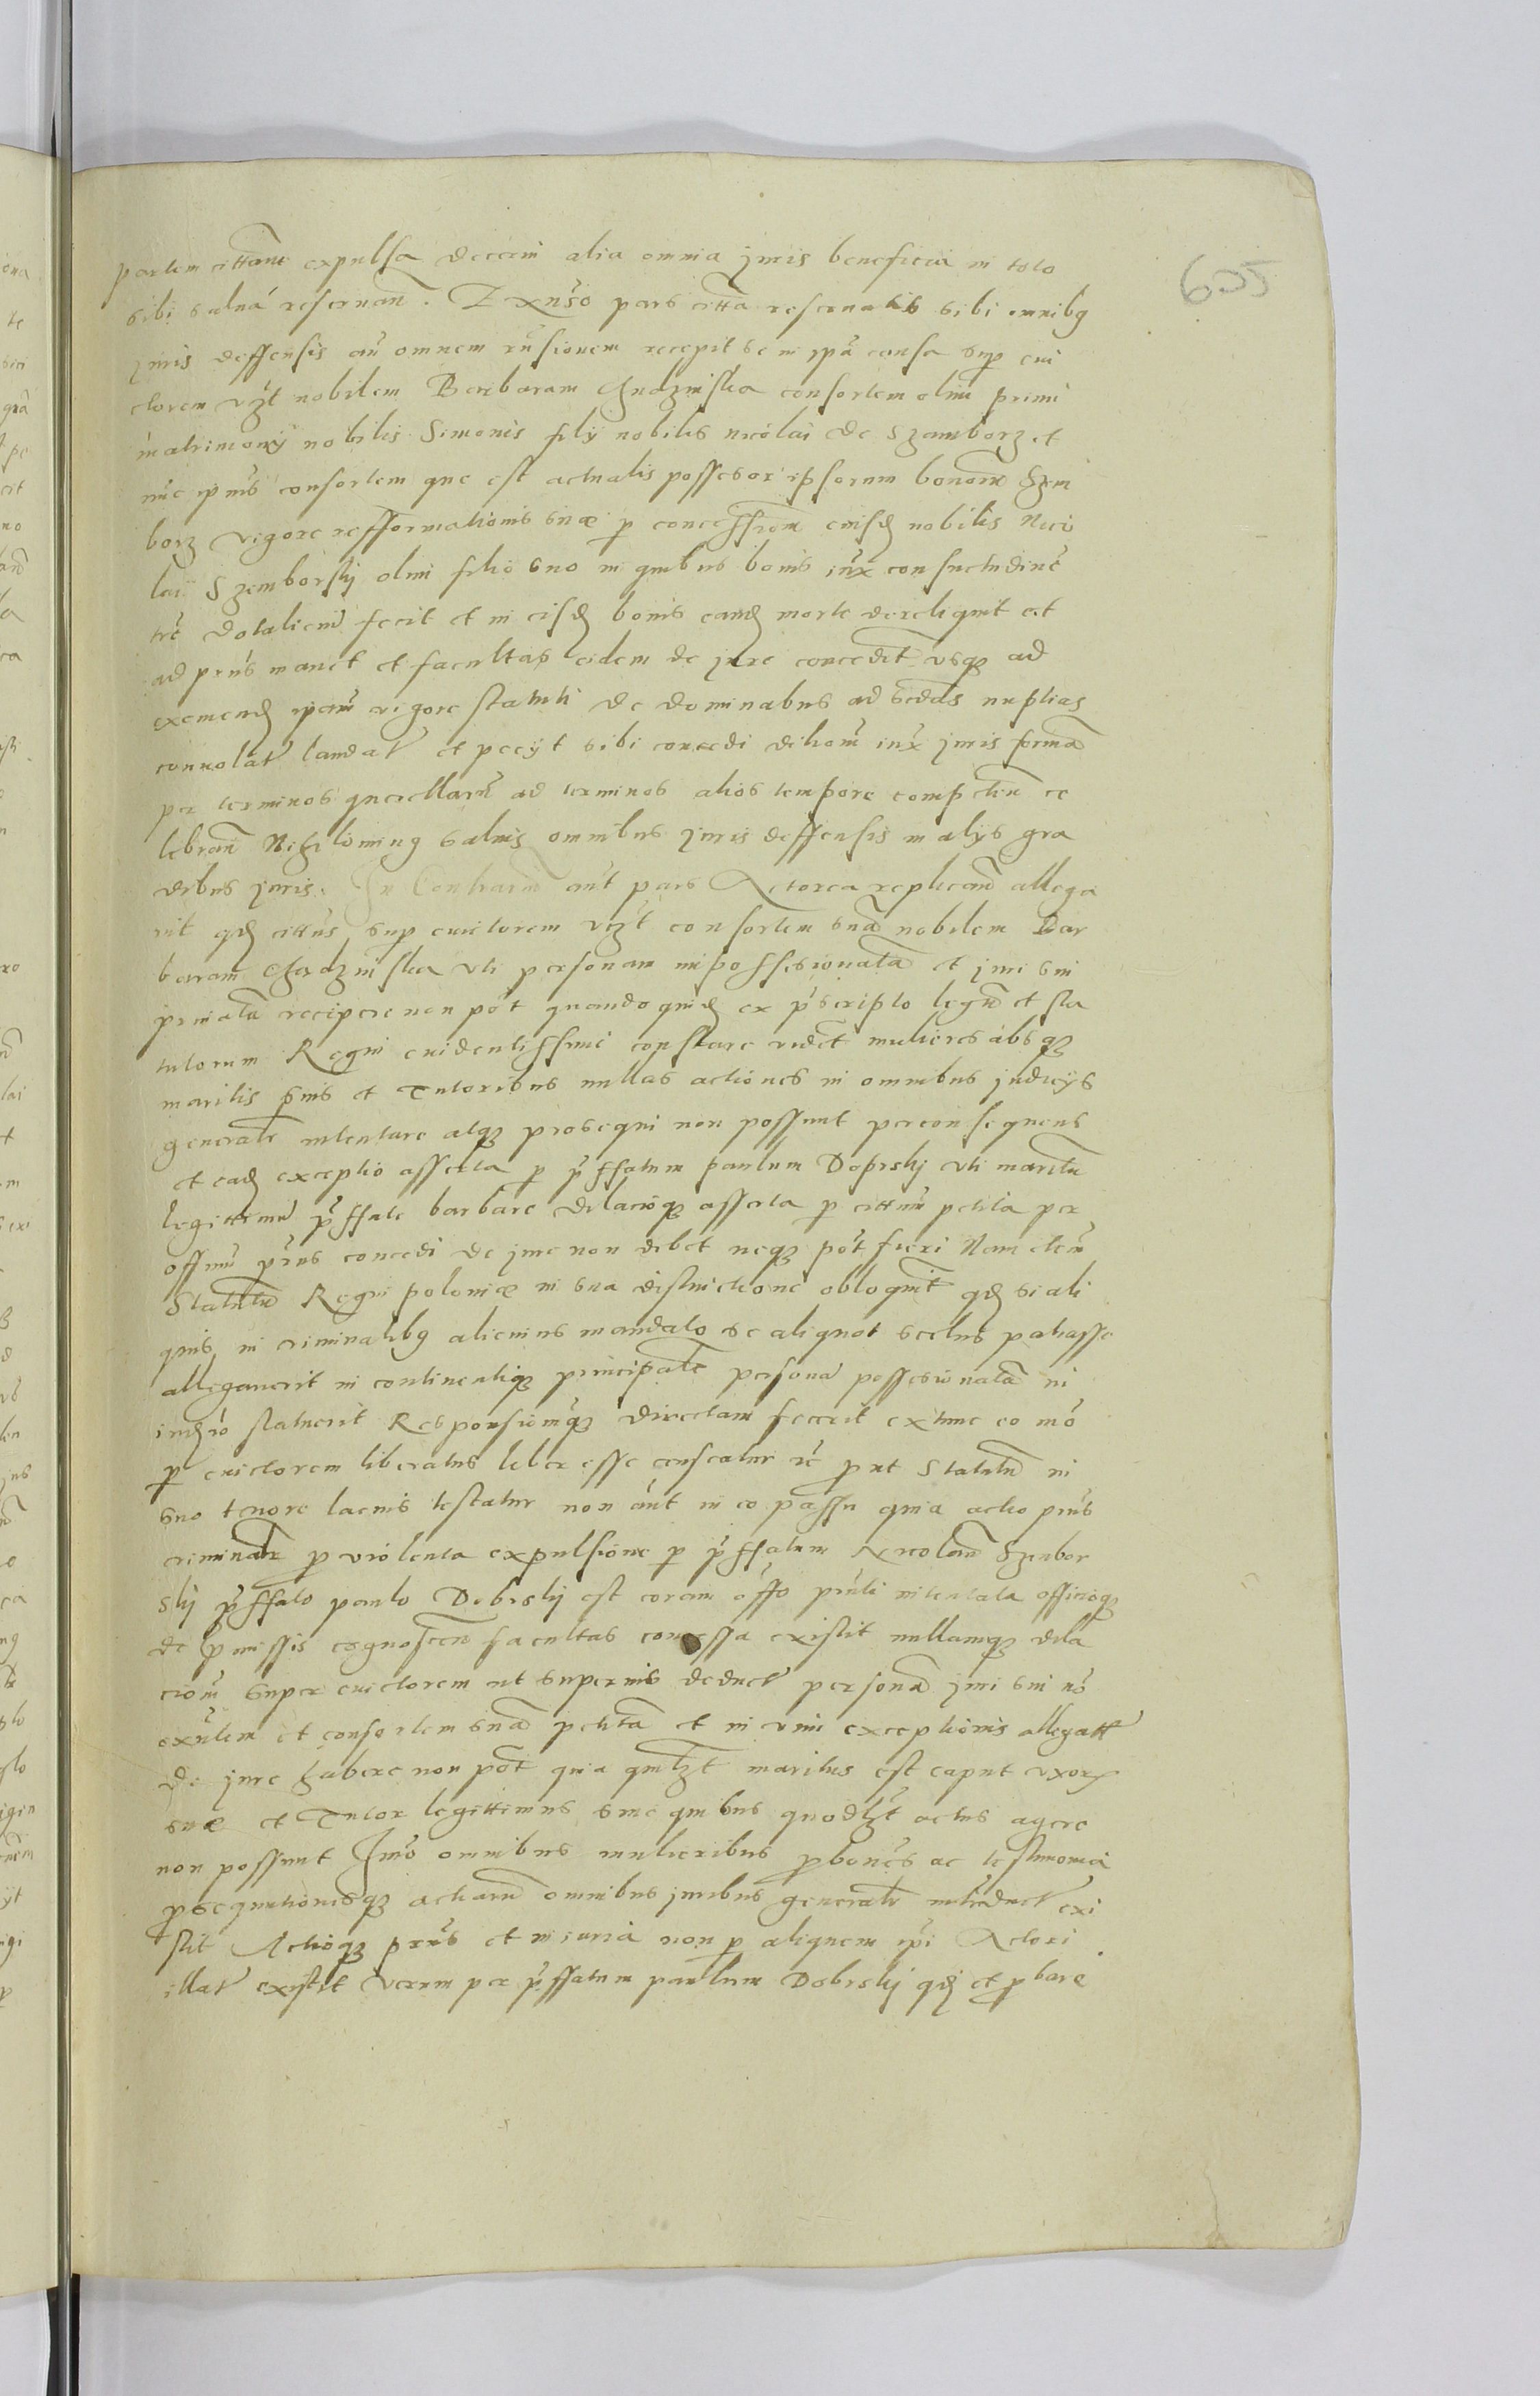 605
partem cittãne expulsa decerni alia omnia juris beneficia in toto
sibi salua reseruañ. Ex aduso pars citta reseruatis sibi omnibg
juris deffensis añ omnem rñsionem recepit se in ipã causa sup eui
ctorem vzt nobilem Barbaram consortem olim primi
matrimonij nobilis Simonis filij nobilis nicolai de Szamborz et
nũc ipius consortem que est actualis possessor ipsorum bonorũ Szem
borz vigore refformationis suæ p concessionẽ eiusdẽ nobilis Nico
lai Szemborskj olim filio suo in quibus bonis iux consuetudinẽ
trẽ dotalicium fecit et in eisdẽ bonis eandẽ morte derelignit et
ad prñs manet et facultas eidem de jure concedit vsqz ad
exemendẽ ipam vigore statuti de dominabus ad secdas nuptias
conuolãt laudat et pecijt sibi concedi dilatiom iux juris formã
per terminos querellarũ ad terminos alios tempore competen ce
lebrañ Nihiloming saluis omnibus juris deffensis in alijs gra
dibus juris. In Contrariũ aũt pars Actorea replicañ allega
uit qd cittus sup euictorem vzt consortem suã nobilem Bar
baram vti personam impossessionatã et juri sui
priuatã recipere non pot quandoquidẽ ex pscripto legũ et sta
tutorum Regni euidentissime constare videt mulieres absqz
maritis suis et Tutoribus nullas actiones in omnibus judicijs
generalr intentare atqz prosequi non possunt per consequens
et eadẽ exceptio asserta p pffatum paulum Dobrskj vti maritũ
legittimũ pffate barbare dilacioqz asserta p cittum petita per
offium prñs concedi de jure non debet neqz pot fieri Nam etem̃
Statutũ Regni poloniæ in sua distinctione obloquit qd si ali
quis in criminalibg alienius mandato se aliquot scelus patrasse
allegauerit in continentiqz principalẽ personã possessionatã in
iudicio statuerit Responsionẽqz directam fecerit extunc eo mõ
p euictorem liberatus liber esse censeatur rẽ put Statutũ in
suo tenore lacius testatur non aũt in eo passu quia actio prñs
criminalr p violenta expulsione p pffatum Nicolaũ Szembor
skj pffato paulo Dobrskj est coram offo prñti intentata officioqz
de pmissis cognoscen facultas concessa existit nullamqz dila
cionẽ super euictorem ut superius deduct personã juri sui nõ
exulem et consortem suã petitã et in vim exceptionis allegatt
de jure habere non pot quia qmlzt maritus est caput vxoris
suæ et Tutor legittimus sine quibus quodlzt actus agere
non possunt Imo omnibus mulieribus pbones ac testimonia
psequtionisqz actiarũ omnibus juribus generalr interduct exi
stit Actioqz prñs et iniuria non p aliquem ipi Actori
illat existit verum per pffatum paulum Dobrskj qd et pbare